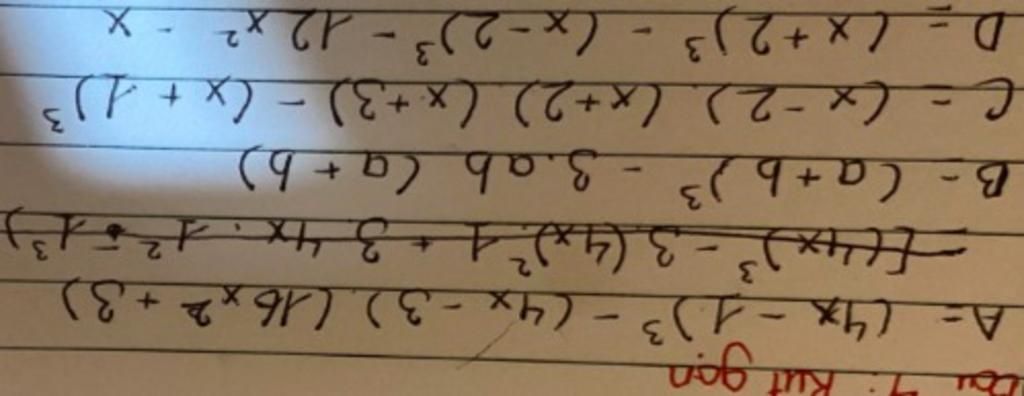 Câu 1: Rút gọn
A = (4x - 1)³ - (4x - 3) (16x² + 3)
= [(4x)³ - 3(4x)².1 + 3.4x.1² - 1³)
B = (a + b)³ - 3.ab (a + b)
C = (x - 2) (x + 2) (x + 3) - (x + 1)³
D = (x + 2)³ - (x - 2)³ - 12x² - x